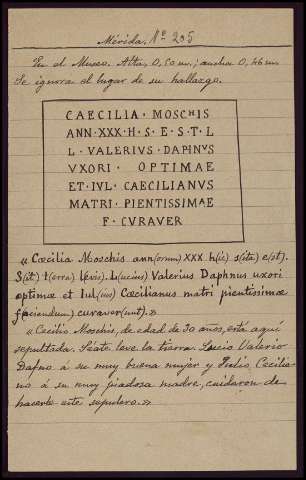 Mérida, Nº 235
En el Museo. Alta, 0,50 m.; ancha 0,46 m.
Se ignora el lugar de su hallazgo.
CAECILIA · MOSCHIS
ANN · XXX · H · S · E · S · T · L
L · VALERIUS · DAPNUS
UXORI · OPTIMAE
ET · IUL · CAECILIANUS
MATRI · PIENTISSIMAE
F · CURAVER
« Cœcilia Moschis ann(orum) XXX h(ic) s(ita) e(st).
S(it) t(erra) l(evis). L(ucius) Valerius Daphnus uxori
optimæ et Iul(ius) Cœcilianus matri pientissimæ
f(aciendum) curaver(unt). »
« Cecilia Moschis, de edad de 30 años, está aquí
sepultada. Séate leve la tierra. Lucio Valerio
Dafno á su muy buena mujer y Julio Cecilia
no á su muy piadosa madre, cuidaron de
hacerle este sepulcro. »